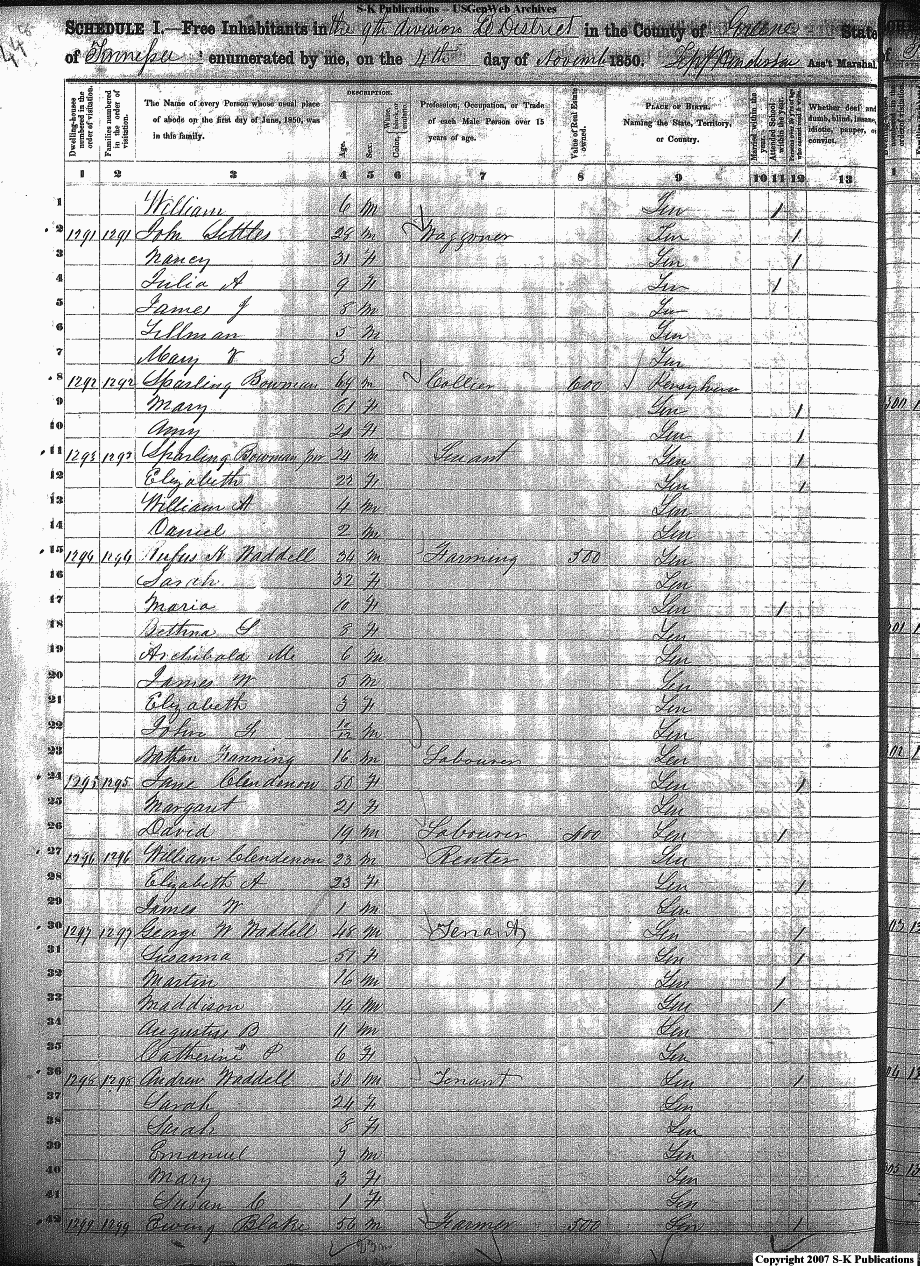 S-K Publications – USGenWeb Archives
SCHEDULE I.—Free Inhabitants in the 9th division E District in the County of Greene State
of Tennessee enumerated by me, on the 4th day of November 1850. Ass't Marshal.
DESCRIPTION.
Dwelling-houses numbered in the order of visitation.
Families numbered in the order of visitation.
The Name of every Person whose usual place of abode on the first day of June, 1850, was in this family.
Age.
Sex.
White, black, or mulatto.
Color,
Profession, Occupation, or Trade of each Male Person over 15 years of age.
Value of Real Estate owned.
PLACE OF BIRTH. Naming the State, Territory, or Country.
Married within the year.
Attended School within the year.
Whether deaf and dumb, blind, insane, idiotic, pauper, or convict.
1 2 3 4 5 6 7 8 9 10 11 12 13
1 William 6 m Ten 1
2 1291 1291 John Settles 28 m Waggoner Ten 1
3 Nancy 31 F Ten 1
4 Julia A 9 F Ten 1
5 James J 8 m Ten
6 Tillman 5 m Ten
7 Mary V 3 F Ten
8 1292 1292 Sparling Bowman 69 m Collier 600
9 Mary 61 F Ten 1
10 Amy 20 F Ten 1
11 1293 1293 Sparling Bowman Jur 24 m Tenant Ten 1
12 Elizabeth 22 F Ten 1
13 William A 4 m Ten
14 Daniel 2 m Ten
15 1294 1294 Rufus K Waddell 34 m Farming 500 Ten
16 Sarah 32 F Ten
17 Maria 10 F Ten 1
18 Bettina S 8 F Ten
19 Archibald Mc 6 m Ten
20 James W 5 m Ten
21 Elizabeth 3 F Ten
22 John m Ten
23 Nathan Fanning 16 m Labourer Ten
24 1295 1295 Jane Clendenon 50 F Ten 1
25 Margaret 21 F Ten
26 David 19 m Labourer 400 Ten 1
27 1296 1296 William Clendenon 23 m Renter Ten
28 Elizabeth A 23 F Ten 1
29 James W 1 m Ten
30 1297 1297 George W Waddell 48 m Tenant Ten 1
31 Susanna 51 F Ten 1
32 Martin 16 m Ten 1
33 Maddison 14 m Ten 1
34 B 11 m Ten
35 Catherine P 6 F Ten
36 1298 1298 Andrew Waddell 30 m Tenant Ten 1
37 Sarah 24 F Ten
38 Sarah 8 F Ten
39 Emanuel 7 m Ten
40 Mary 3 F Ten
41 Susan C 1 F Ten
42 1299 1299 Ewing Blake 56 m Farmer 500 Ten 1
23 m
Copyright 2007 S-K Publications